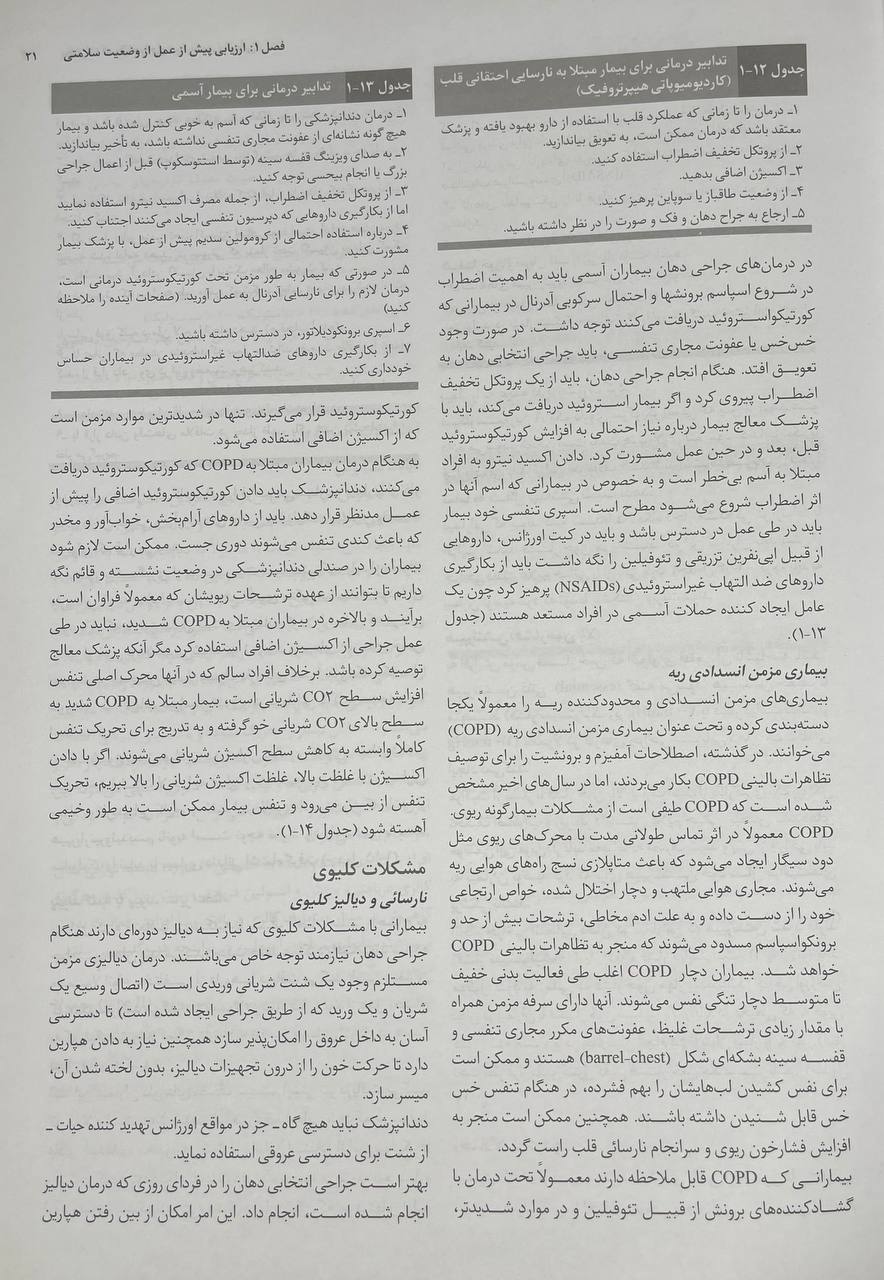 فصل ۱: ارزیابی پیش از عمل از وضعیت سلامتی ۲۱
جدول ۱۲-۱ تدابیر درمانی برای بیمار مبتلا به نارسایی احتقانی قلب
(کاردیومیوپاتی هیپرتروفیک)
۱ـ درمان را تا زمانی که عملکرد قلب با استفاده از دارو بهبود یافته و پزشک
معتقد باشد که درمان ممکن است، به تعویق بیاندازید.
۲ـ از پروتکل تخفیف اضطراب استفاده کنید.
۳ـ اکسیژن اضافی بدهید.
۴ـ از وضعیت طاقباز یا سوپاین پرهیز کنید.
۵ـ ارجاع به جراح دهان و فک و صورت را در نظر داشته باشید.
در درمان‌های جراحی دهان بیماران آسمی باید به اهمیت اضطراب
در شروع اسپاسم برونشها و احتمال سرکوبی آدرنال در بیمارانی که
کورتیکواستروئید دریافت می‌کنند توجه داشت. در صورت وجود
خس‌خس یا عفونت مجاری تنفسی، باید جراحی انتخابی دهان به
تعویق افتد. هنگام انجام جراحی دهان، باید از یک پروتکل تخفیف
اضطراب پیروی کرد و اگر بیمار استروئید دریافت می‌کند، باید با
پزشک معالج بیمار درباره نیاز احتمالی به افزایش کورتیکوستروئید
قبل، بعد و در حین عمل مشورت کرد. دادن اکسید نیترو به افراد
مبتلا به آسم بی‌خطر است و به خصوص در بیمارانی که اسم آنها در
اثر اضطراب شروع می‌شود مطرح است. اسپری تنفسی خود بیمار
باید در طی عمل در دسترس باشد و باید در کیت اورژانس، داروهایی
از قبیل اپی‌نفرین تزریقی و تئوفیلین را نگه داشت باید از بکارگیری
داروهای ضد التهاب غیراستروئیدی (NSAIDs) پرهیز کرد چون یک
عامل ایجاد کننده حملات آسمی در افراد مستعد هستند (جدول
۱۳-۱).
بیماری مزمن انسدادی ریه
بیماری‌های مزمن انسدادی و محدودکننده ریه را معمولاً یکجا
دسته‌بندی کرده و تحت عنوان بیماری مزمن انسدادی ریه (COPD)
می‌خوانند. در گذشته، اصطلاحات آمفیزم و برونشیت را برای توصیف
تظاهرات بالینی COPD بکار می‌بردند، اما در سال‌های اخیر مشخص
شده است که COPD طیفی است از مشکلات بیمارگونه ریوی.
COPD معمولاً در اثر تماس طولانی مدت با محرک‌های ریوی مثل
دود سیگار ایجاد می‌شود که باعث متاپلازی نسج راه‌های هوایی ریه
می‌شوند. مجاری هوایی ملتهب و دچار اختلال شده، خواص ارتجاعی
خود را از دست داده و به علت ادم مخاطی، ترشحات بیش از حد و
برونکواسپاسم مسدود می‌شوند که منجر به تظاهرات بالینی COPD
خواهد شد. بیماران دچار COPD اغلب طی فعالیت بدنی خفیف
تا متوسط دچار تنگی نفس می‌شوند. آنها دارای سرفه مزمن همراه
با مقدار زیادی ترشحات غلیظ، عفونت‌های مکرر مجاری تنفسی و
قفسه سینه بشکه‌ای شکل (barrel-chest) هستند و ممکن است
برای نفس کشیدن لب‌هایشان را بهم فشرده، در هنگام تنفس خس
خس قابل شنیدن داشته باشند. همچنین ممکن است منجر به
افزایش فشارخون ریوی و سرانجام نارسائی قلب راست گردد.
بیمارانی که COPD قابل ملاحظه دارند معمولاً تحت درمان با
گشادکننده‌های برونش از قبیل تئوفیلین و در موارد شدیدتر،
جدول ۱۳-۱ تدابیر درمانی برای بیمار آسمی
۱ـ درمان دندانپزشکی را تا زمانی که آسم به خوبی کنترل شده باشد و بیمار
هیچ گونه نشانه‌ای از عفونت مجاری تنفسی نداشته باشد، به تأخیر بیاندازید.
۲ـ به صدای ویزینگ قفسه سینه (توسط استتوسکوپ) قبل از اعمال جراحی
بزرگ یا انجام بیحسی توجه کنید.
۳ـ از پروتکل تخفیف اضطراب، از جمله مصرف اکسید نیترو استفاده نمایید
اما از بکارگیری داروهایی که دپرسیون تنفسی ایجاد می‌کنند اجتناب کنید.
۴ـ درباره استفاده احتمالی از کرومولین سدیم پیش از عمل، با پزشک بیمار
مشورت کنید.
۵ـ در صورتی که بیمار به طور مزمن تحت کورتیکوستروئید درمانی است،
درمان لازم را برای نارسایی آدرنال به عمل آورید. (صفحات آینده را ملاحظه
کنید)
۶ـ اسپری برونکودیلاتور، در دسترس داشته باشید.
۷ـ از بکارگیری داروهای ضدالتهاب غیراستروئیدی در بیماران حساس
خودداری کنید.
کورتیکوستروئید قرار می‌گیرند. تنها در شدیدترین موارد مزمن است
که از اکسیژن اضافی استفاده می‌شود.
به هنگام درمان بیماران مبتلا به COPD که کورتیکوستروئید دریافت
می‌کنند، دندانپزشک باید دادن کورتیکوستروئید اضافی را پیش از
عمل مدنظر قرار دهد. باید از داروهای آرام‌بخش، خواب‌آور و مخدر
که باعث کندی تنفس می‌شوند دوری جست. ممکن است لازم شود
بیماران را در صندلی دندانپزشکی در وضعیت نشسته و قائم نگه
داریم تا بتوانند از عهده ترشحات ریویشان که معمولاً فراوان است،
برآیند و بالاخره در بیماران مبتلا به COPD شدید، نباید در طی
عمل جراحی از اکسیژن اضافی استفاده کرد مگر آنکه پزشک معالج
توصیه کرده باشد. برخلاف افراد سالم که در آنها محرک اصلی تنفس
افزایش سطح CO۲ شریانی است، بیمار مبتلا به COPD شدید به
سطح بالای CO۲ شریانی خو گرفته و به تدریج برای تحریک تنفس
کاملاً وابسته به کاهش سطح اکسیژن شریانی می‌شوند. اگر با دادن
اکسیژن با غلظت بالا، غلظت اکسیژن شریانی را بالا ببریم، تحریک
تنفس از بین می‌رود و تنفس بیمار ممکن است به طور وخیمی
آهسته شود (جدول ۱۴-۱).
مشکلات کلیوی
نارسائی و دیالیز کلیوی
بیمارانی با مشکلات کلیوی که نیاز به دیالیز دوره‌ای دارند هنگام
جراحی دهان نیازمند توجه خاص می‌باشند. درمان دیالیزی مزمن
مستلزم وجود یک شنت شریانی وریدی است (اتصال وسیع یک
شریان و یک ورید که از طریق جراحی ایجاد شده است) تا دسترسی
آسان به داخل عروق را امکان‌پذیر سازد همچنین نیاز به دادن هپارین
دارد تا حرکت خون را از درون تجهیزات دیالیز، بدون لخته شدن آن،
میسر سازد.
دندانپزشک نباید هیچ گاه ـ جز در مواقع اورژانس تهدید کننده حیات ـ
از شنت برای دسترسی عروقی استفاده نماید.
بهتر است جراحی انتخابی دهان را در فردای روزی که درمان دیالیز
انجام شده است، انجام داد. این امر امکان از بین رفتن هپارین